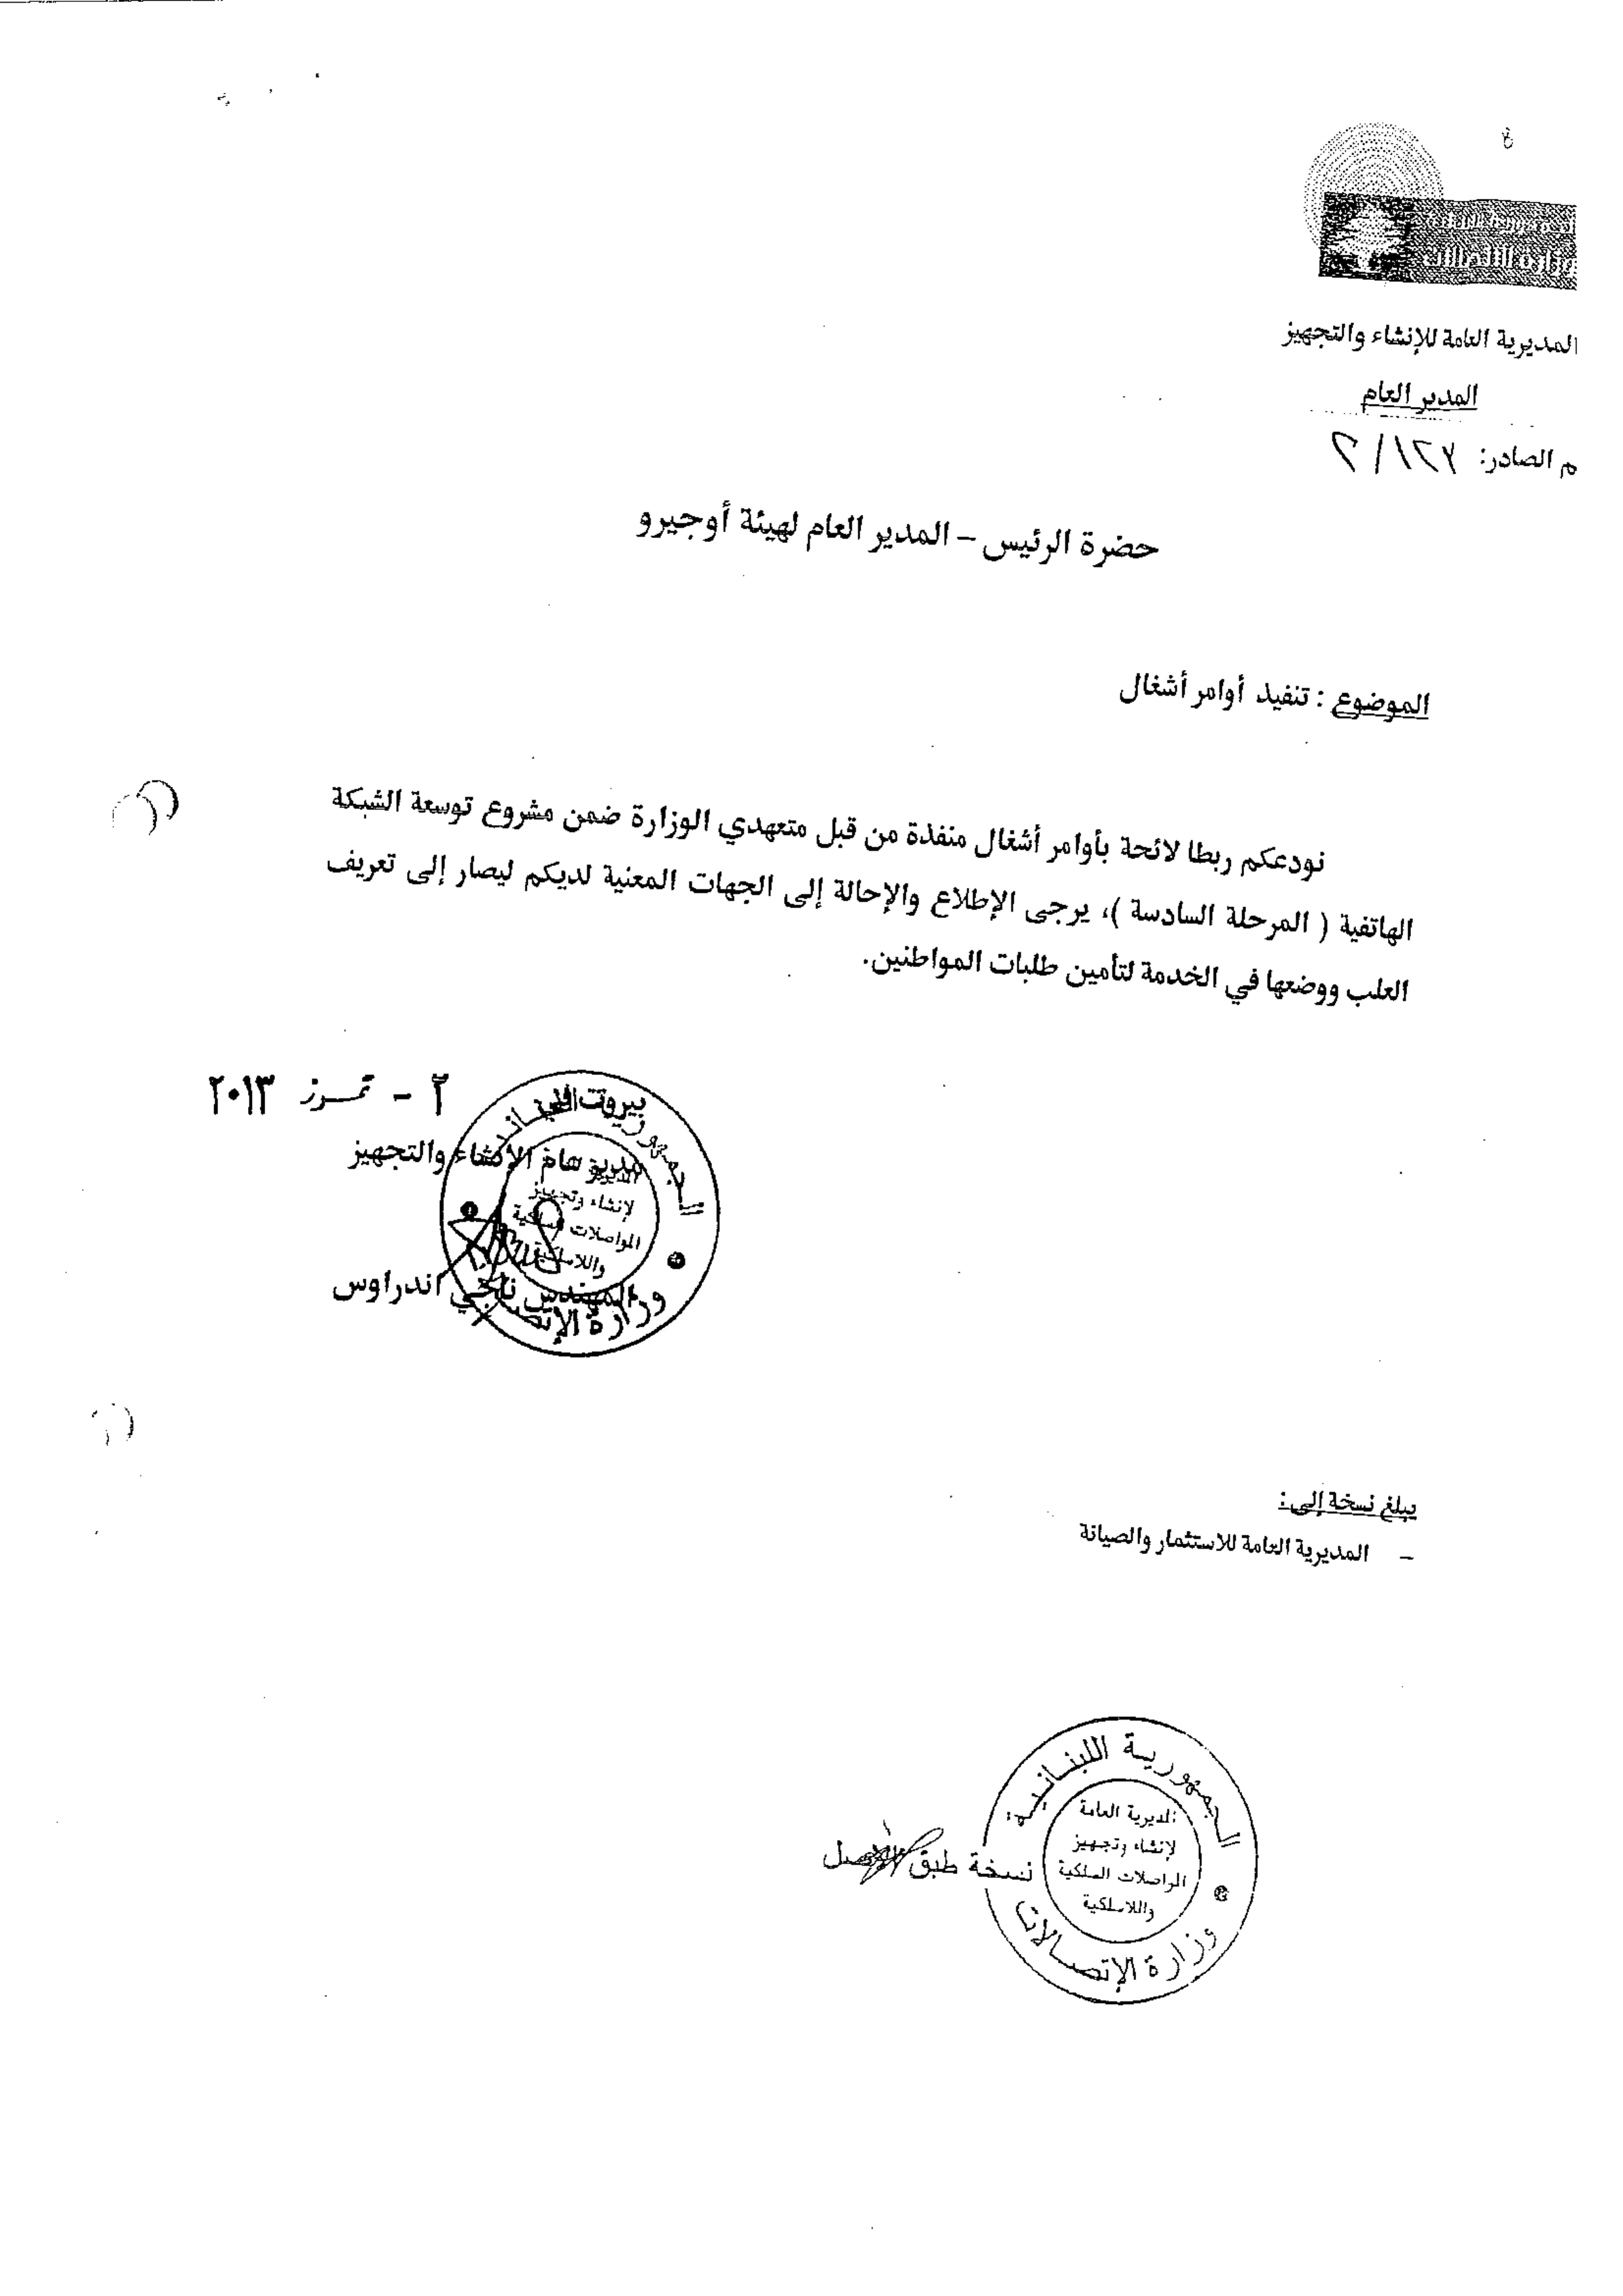 وزارة الاتصالات
المديرية العامة للإنشاء والتجهيز
المدير العام
م الصادر:
حضرة الرئيس – المدير العام لهيئة أوجيرو
الموضوع : تنفيد أوامر أشغال
نودعكم ربطا لائحة بأوامر أشغال منفذة من قبل متعهدي الوزارة ضمن مشروع توسعة الشبكة
الهاتفية ( المرحلة السادسة )، يرجى الإطلاع والإحالة إلى الجهات المعنية لديكم ليصار إلى تعريف
العلب ووضعها في الخدمة لتأمين طلبات المواطنين.
بيروت في ٢ - تمـوز ٢٠١٣
مدير عام الإنشاء والتجهيز
المهندس ناجي اندراوس
الجمهورية
لإنشاء وتجهيز
المواصلات السلكية
واللاسلكية
وزارة الإتصالات
يبلغ نسخة إلى:
– المديرية العامة للاستثمار والصيانة
الجمهورية اللبنانية
المديرية العامة
لإنشاء وتجهيز
المواصلات السلكية
واللاسلكية
وزارة الإتصالات
نسخة طبق الأصل